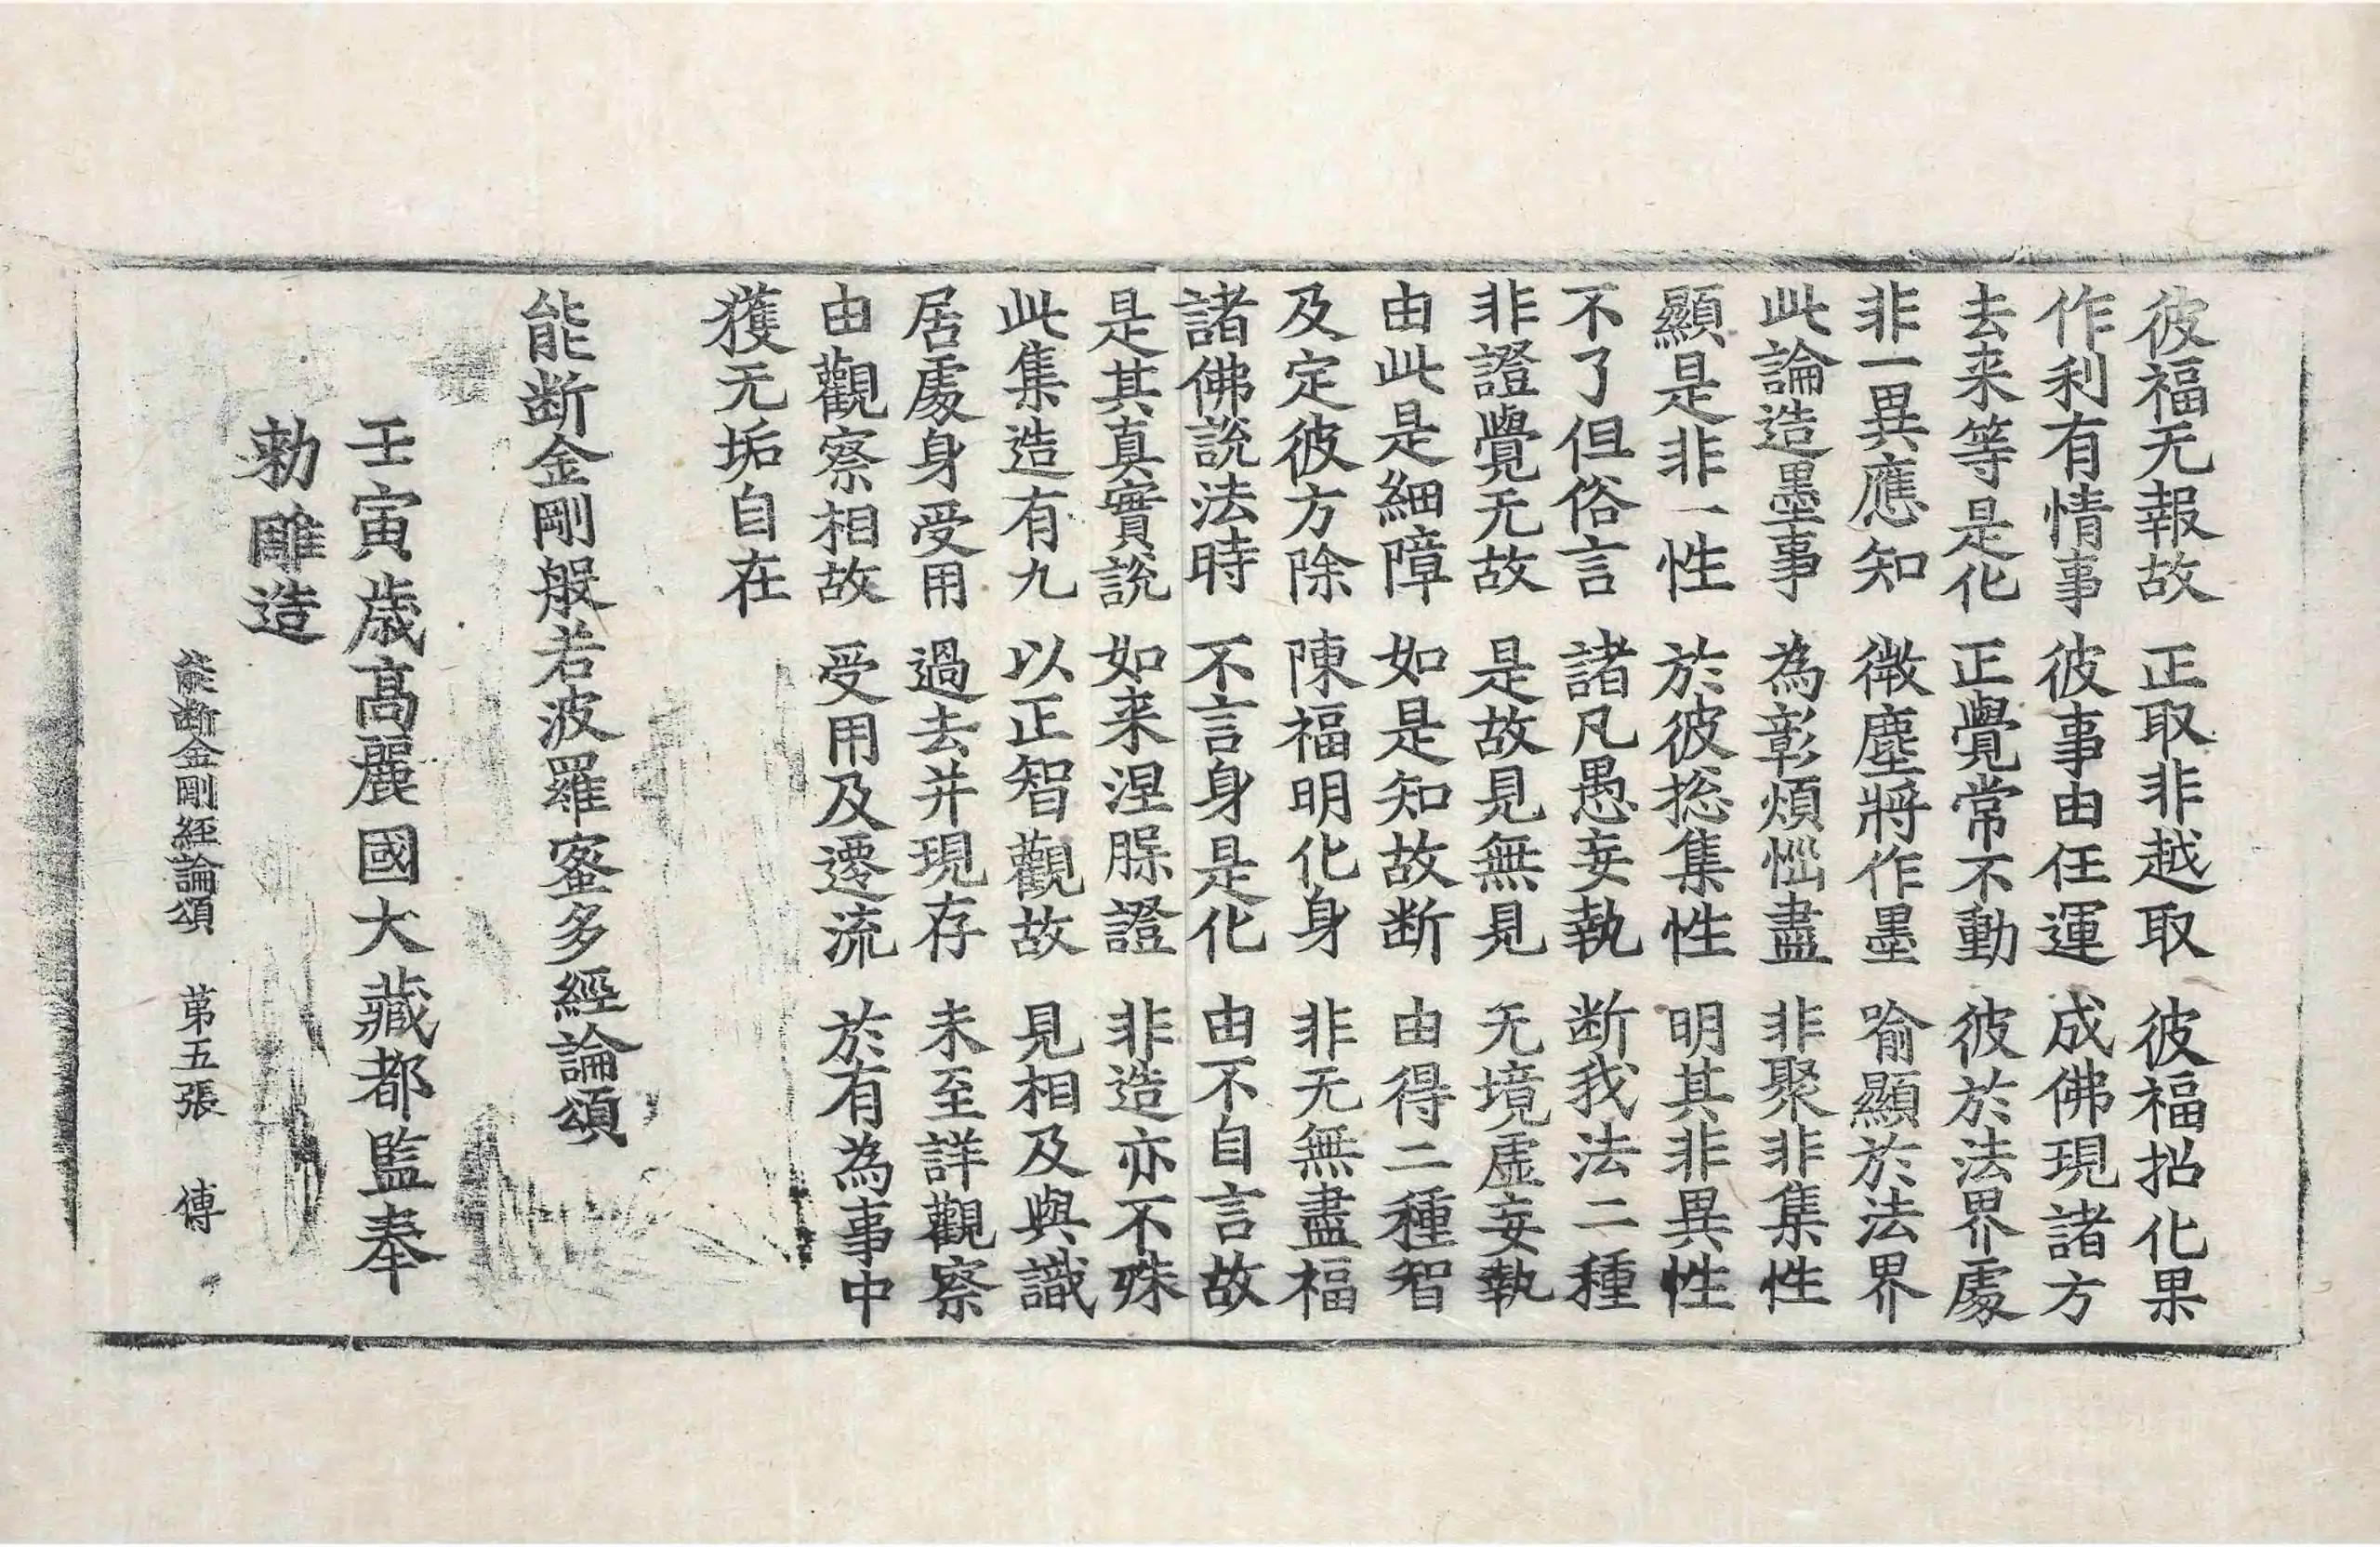 彼福无報故 正取非越取 彼福招化果
作利有情事 彼事由任運 成佛現諸方
去来等是化 正覺常不動 彼於法界處
非一異應知 微塵將作墨 喻顯於法界
此論造墨事 為彰煩惱盡 非聚非集性
顯是非一性 於彼捴集性 明其非異性
不了但俗言 諸凡愚妄執 断我法二種
非證覺无故 是故見無見 无境虛妄執
由此是細障 如是知故断 由得二種智
及定彼方除 陳福明化身 非无無盡福
諸佛說法時 不言身是化 由不自言故
是其真實說 如来涅槃證 非造亦不殊
此集造有九 以正智觀故 見相及與識
居處身受用 過去并現存 未至詳觀察
由觀察相故 受用及遷流 於有為事中
獲无垢自在
能断金剛般若波羅蜜多經論頌
壬寅歳高麗國大藏都監奉
勅雕造
能断金剛經論頌 苐五張 傅